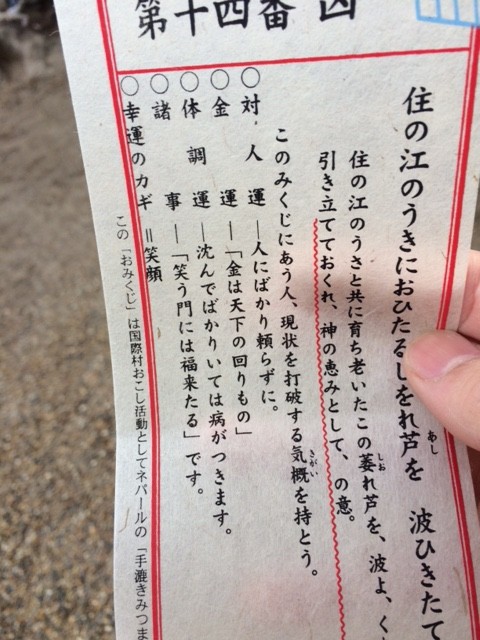 第十四番 凶
住の江のうきにおひたるしをれ芦を 波ひきたて
あし
住の江のうさと共に育ち老いたこの萎れ芦を、波よ、く
しお
引き立てておくれ、神の恵みとして、の意。
このみくじにあう人、現状を打破する気概を持とう。
きがい
○対人運―人にばかり頼らずに。
○金運―「金は天下の回りもの」
○体調運―沈んでばかりいては病がつきます。
○諸事―「笑う門には福来たる」です。
○幸運のカギ=笑顔
この「おみくじ」は国際村おこし活動としてネパールの「手漉きみつま